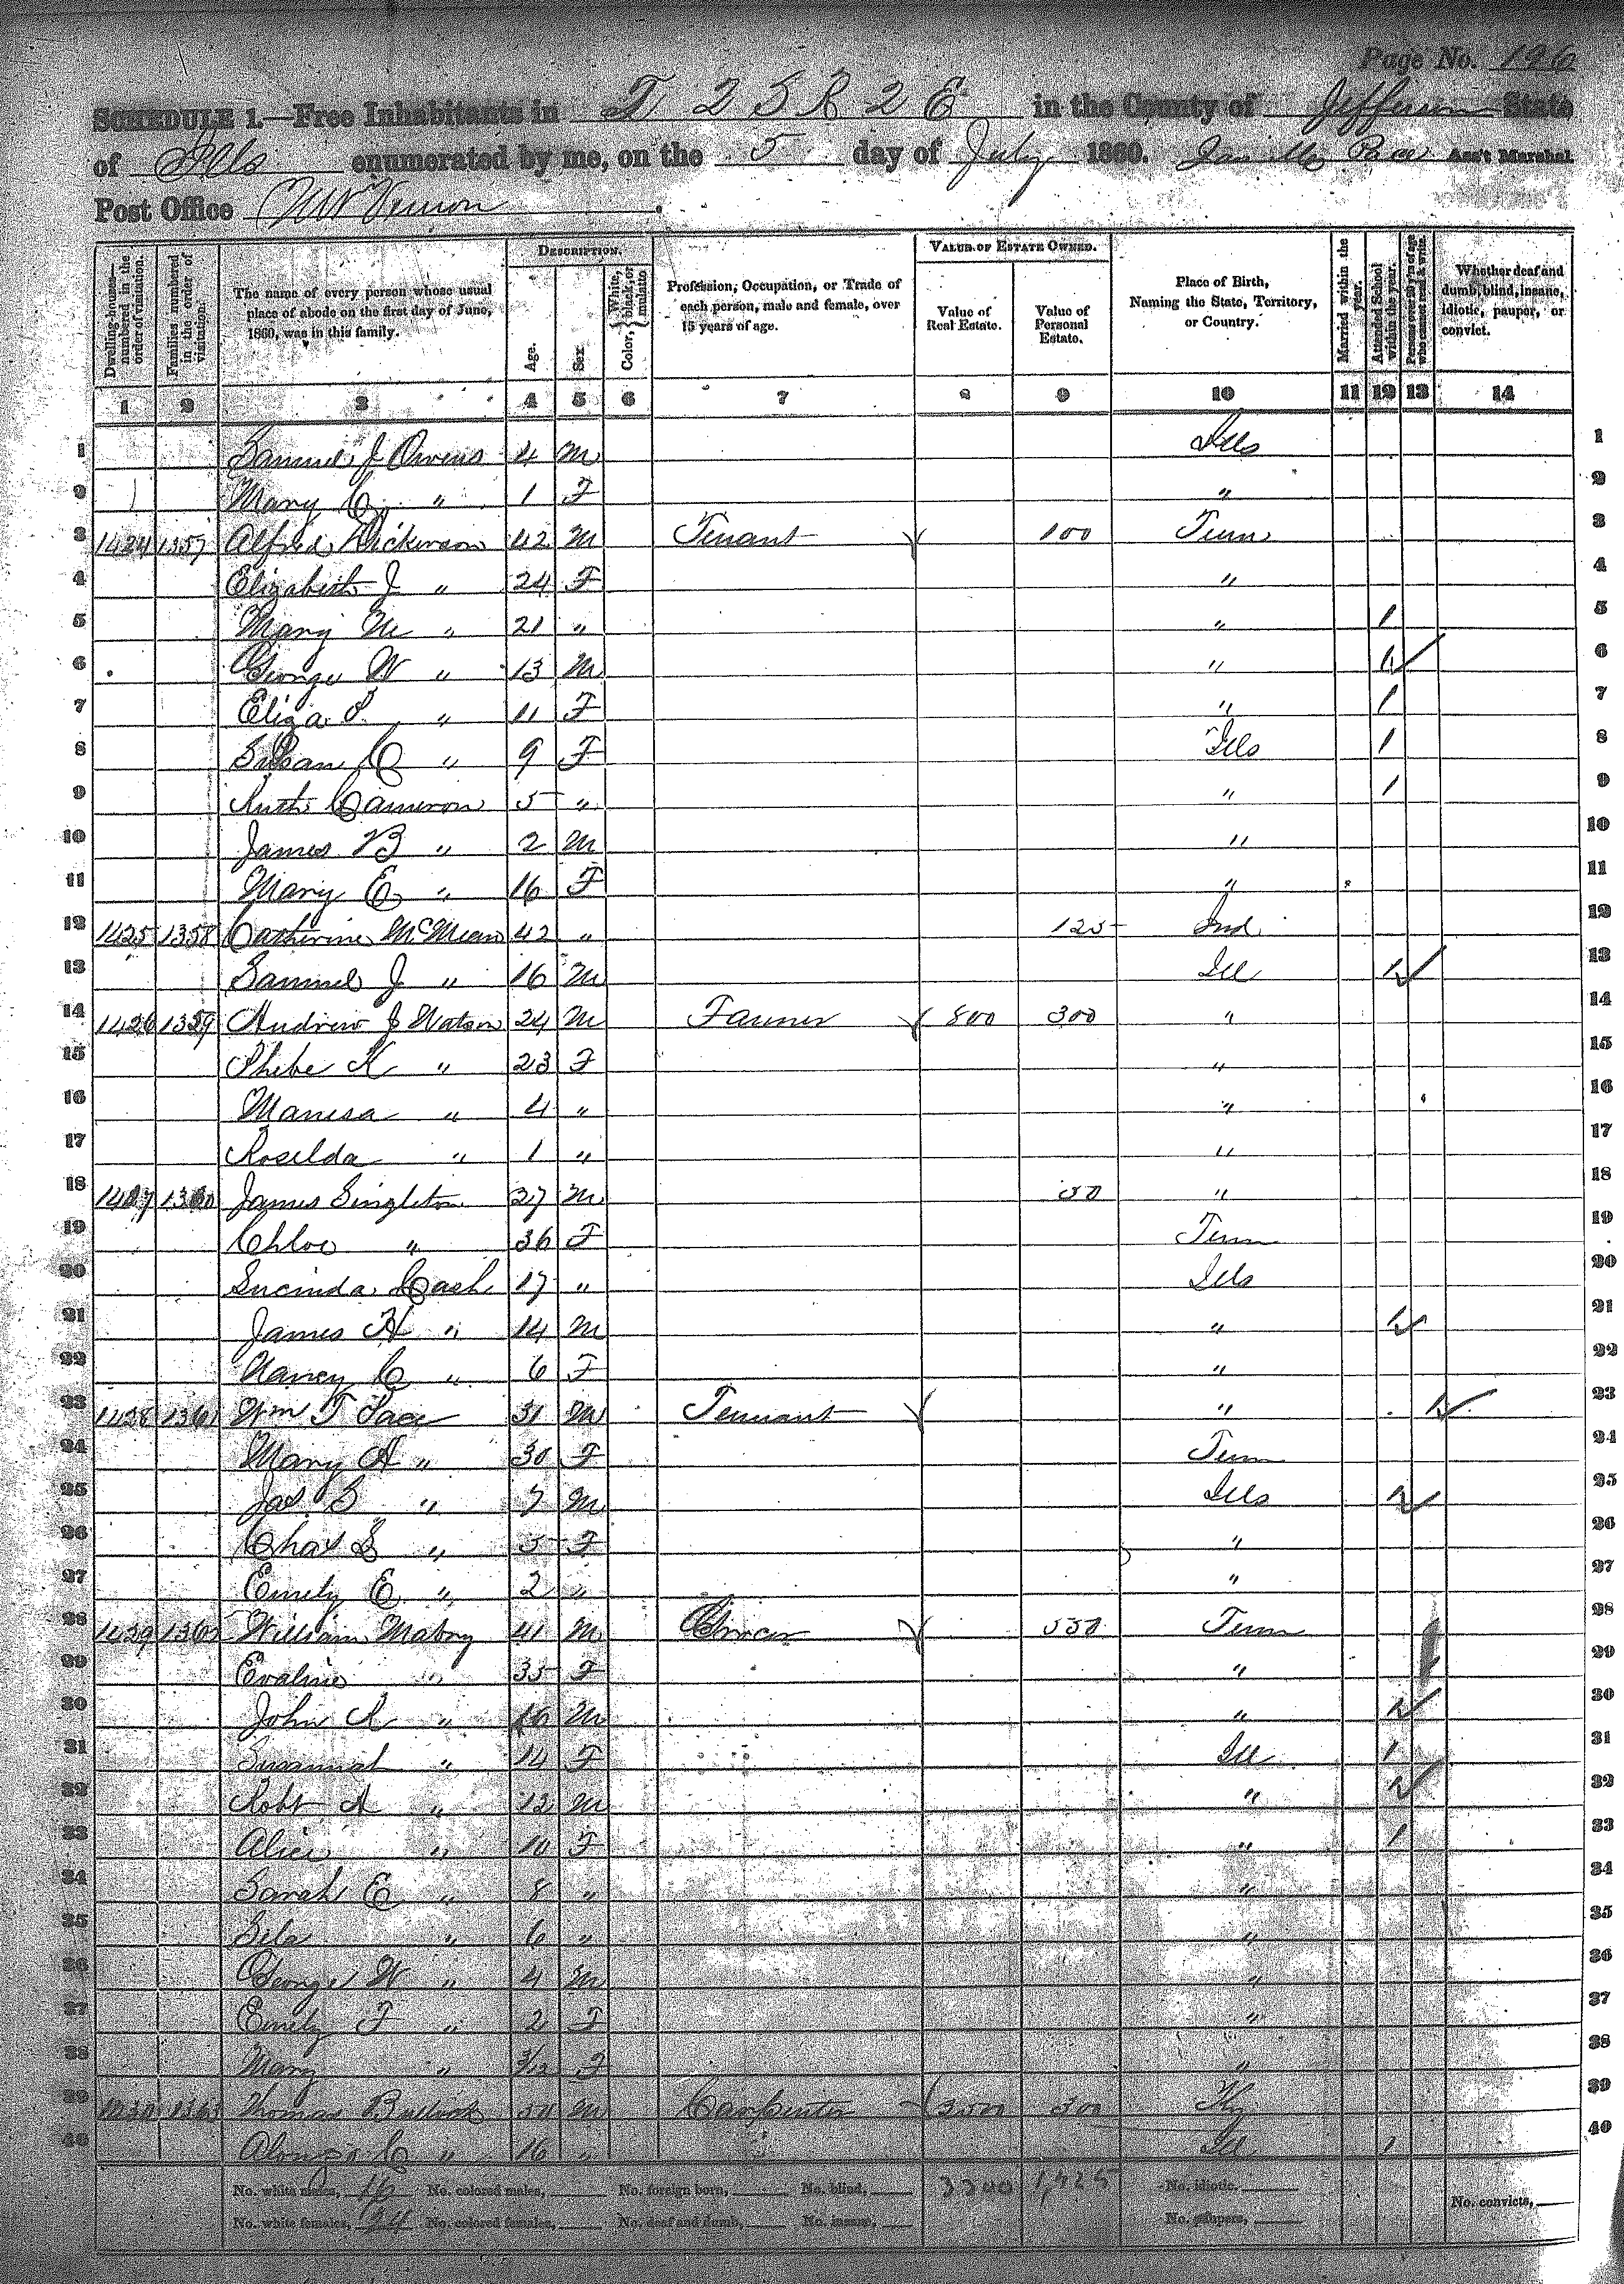 Page No. 196
SCHEDULE 1.—Free Inhabitants in T 2 S R 2 E in the County of Jefferson State
of Ills enumerated by me, on the 5 day of July 1860. Pace Ass't Marshal.
Post Office Mt Vernon
Dwelling-houses—numbered in the order of visitation.
Families numbered in the order of visitation.
The name of every person whose usual place of abode on the first day of June, 1860, was in this family.
DESCRIPTION.
Age.
Sex.
Color, { White, black, or mulatto
Profession, Occupation, or Trade of each person, male and female, over 15 years of age.
VALUE OF ESTATE OWNED.
Value of Real Estate.
Value of Personal Estate.
Place of Birth, Naming the State, Territory, or Country.
Married within the year.
Attended School within the year.
Persons over 20 y'rs of age who cannot read & write.
Whether deaf and dumb, blind, insane, idiotic, pauper, or convict.
1 2 3 4 5 6 7 8 9 10 11 12 13 14
1 Samuel J Owens 4 M Ills 1
2 Mary C " 1 F " 2
3 1424 1357 Alfred Dickinson 42 M Tenant 100 Tenn 3
4 Elizabeth J " 24 F " 4
5 Mary M " 21 " " 1 5
6 George W " 13 M " 1 6
7 Eliza " 11 F " 1 7
8 Susan C " 9 F Ills 1 8
9 Ruth Cameron 5 " " 1 9
10 James B " 2 M " 10
11 Mary E " 16 F " 11
12 1425 1358 Catherine McMean 42 " 125 Ind 12
13 Samuel J " 16 M Ill 1 13
14 1426 1359 Andrew J Watson 24 M Farmer 800 300 " 14
15 Phebe K " 23 F " 15
16 Manesa " 4 " " 16
17 Roselda " 1 " " 17
18 1427 1360 James Singleton 27 M 50 " 18
19 Chloe " 36 F Tenn 19
20 Lucinda Cash 17 " Ills 20
21 James H " 14 M " 1 21
22 Nancy C " 6 F " 22
23 1428 1361 Wm T Pace 31 M Tennant " 1 23
24 Mary A " 30 F Tenn 24
25 Jas S " 7 M Ills 1 25
26 Chas S " 5 F " 26
27 Emily E " 2 " " 27
28 1429 1362 William Mabry 41 M 550 Tenn 28
29 Evaline " 35 F " 29
30 John R " 16 M " 1 30
31 Susannah " 14 F Ill 1 31
32 Robt A " 12 M " 1 32
33 Alice " 10 F " 1 33
34 Sarah E " 8 " " 34
35 " 6 " " 35
36 George W " 4 M " 36
37 Emily F " 2 F " 37
38 Mary " 3/12 F " 38
39 1430 1363 Thomas Bullock 50 M Carpenter 2500 300 Ky 39
40 Alonzo C " 16 " Ill 1 40
No. white males, 16 No. colored males, No. foreign born, No. blind, 3300 1,425 No. idiotic,
No. white females, 24 No. colored females, No. deaf and dumb, No. insane, No. paupers, No. convicts,